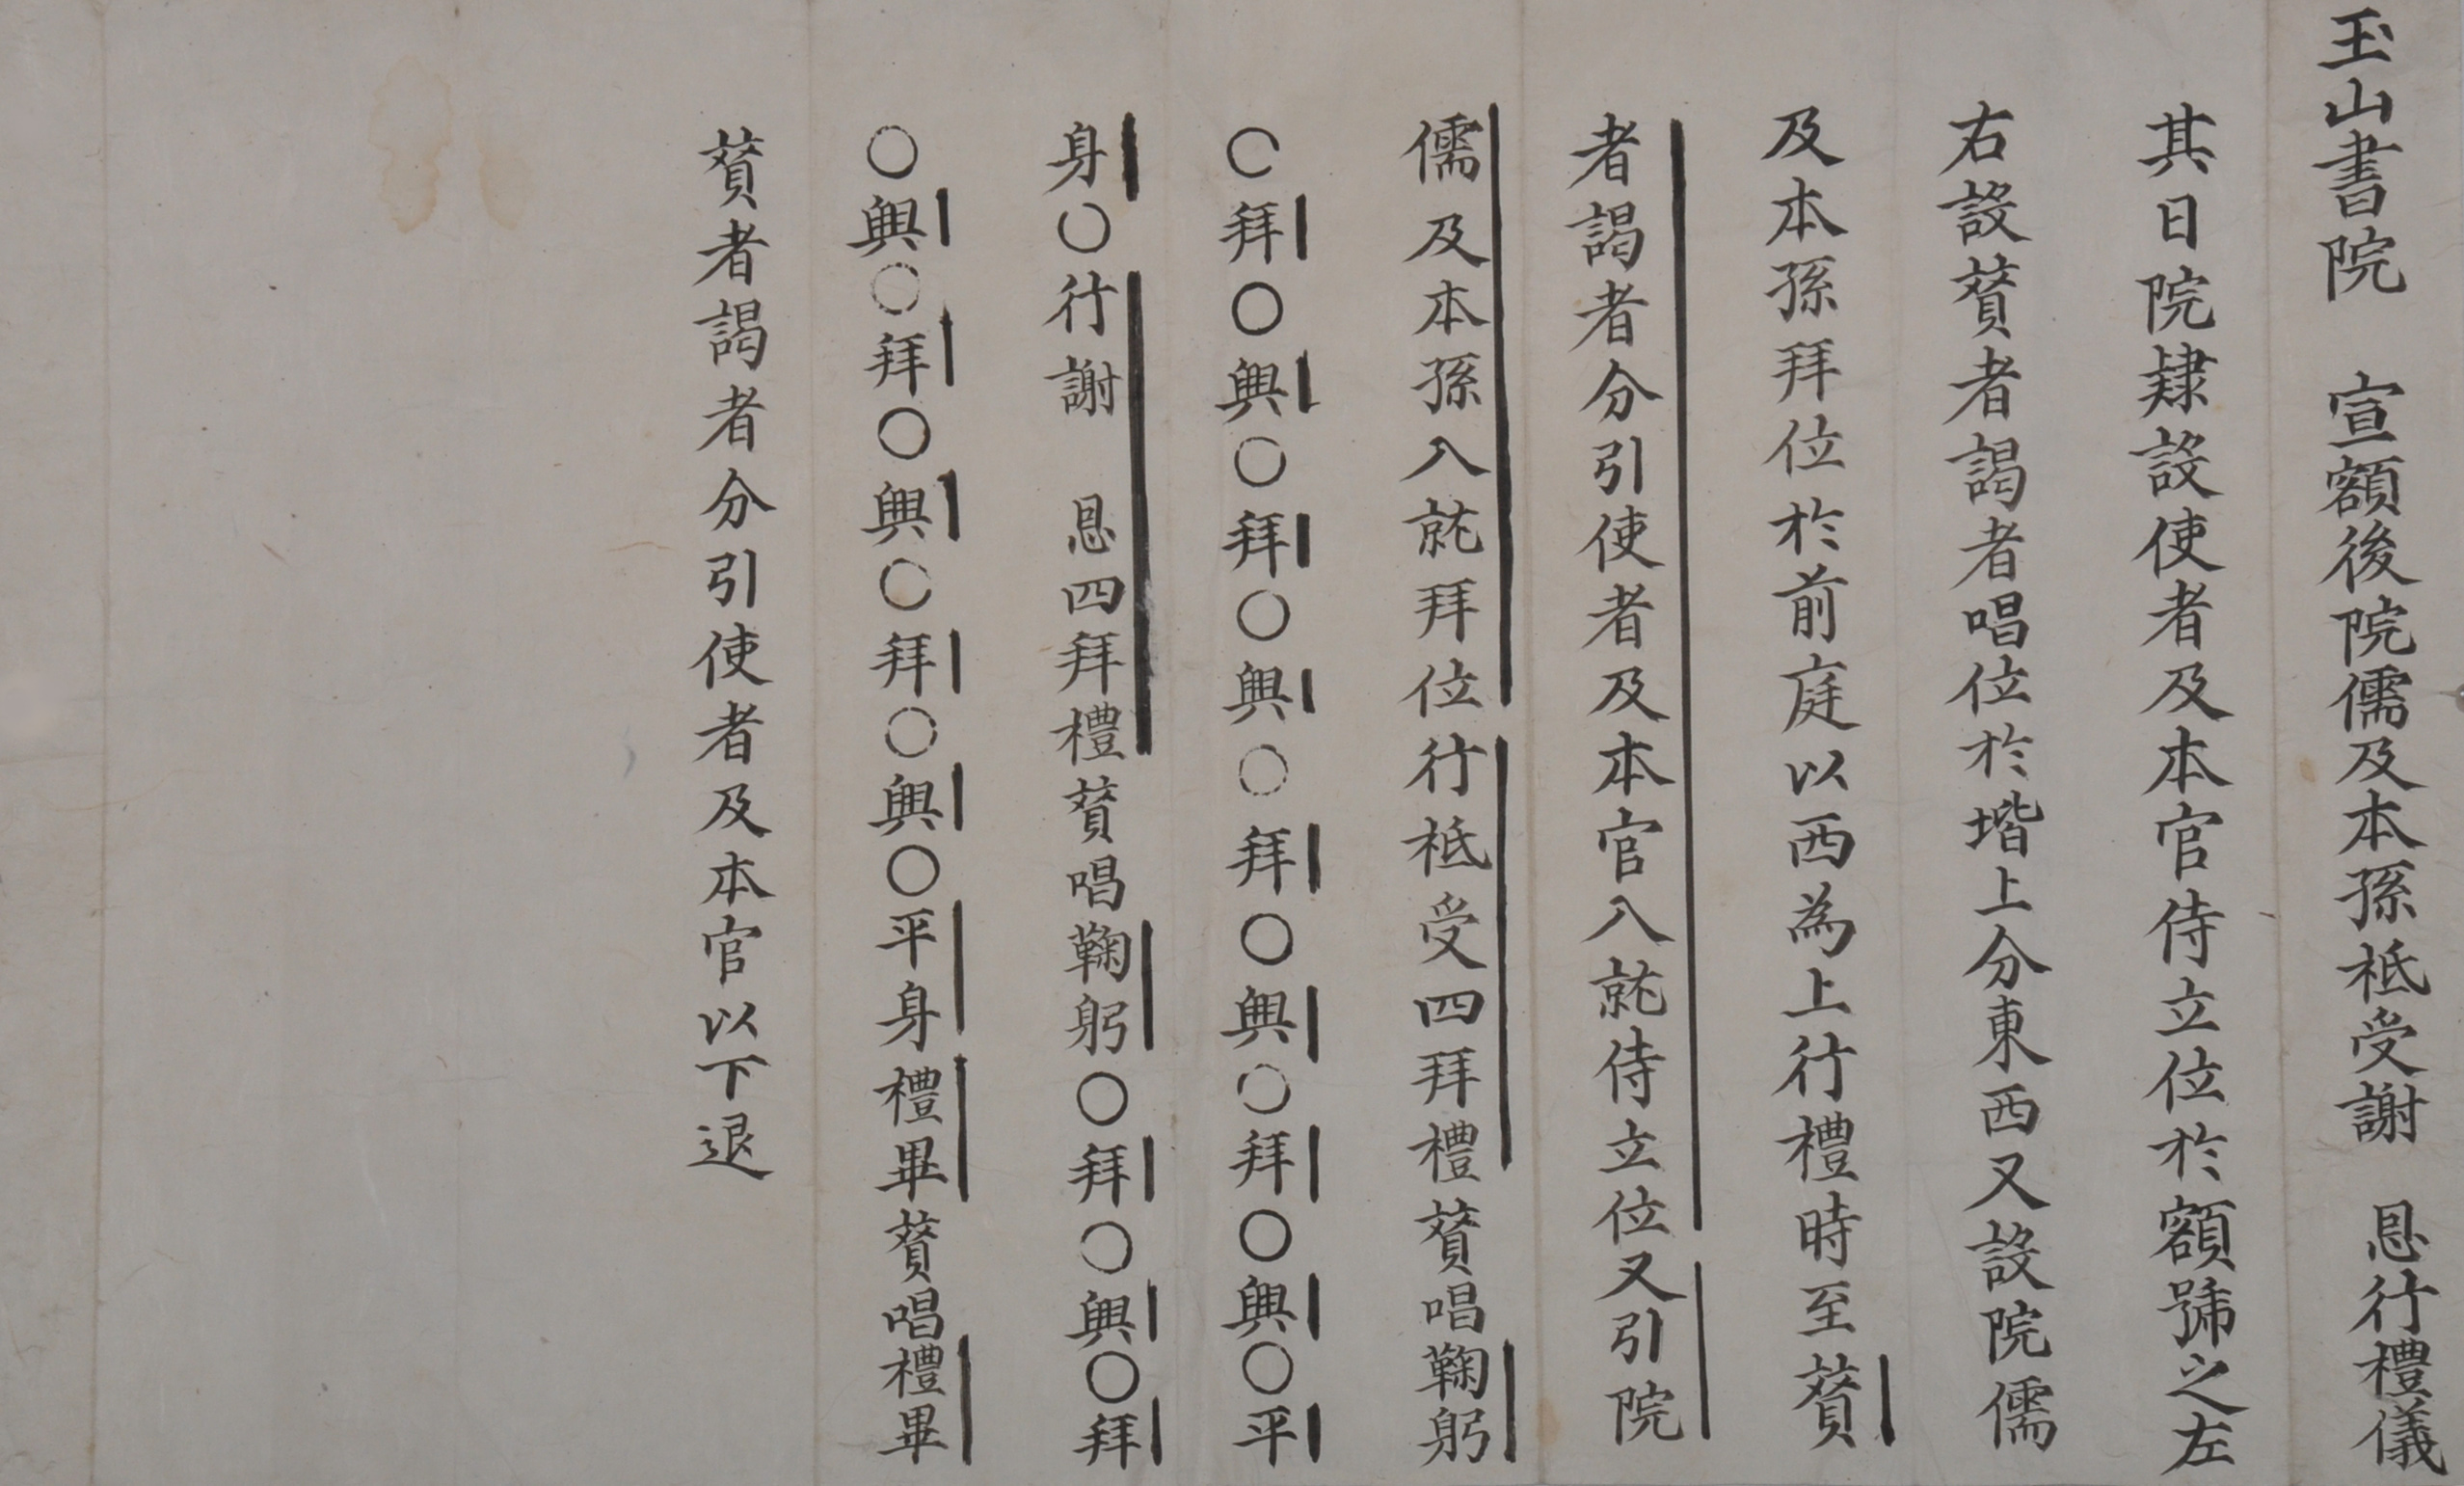 玉山書院　宣額後院儒及本孫祗受謝　恩行禮儀
其日院隷設使者及本官侍立位於額號之左
右設賛者謁者唱位於堦上分東西又設院儒
及本孫拜位於前庭以西為上行禮時至賛
者謁者分引使者及本官入就侍立位又引院
儒及本孫入就拜位行祗受四拜禮賛唱鞠躬
○拜○興○拜○興○拜○興○拜○興○平
身○行謝　恩四拜禮賛唱鞠躬○拜○興○拜
○興○拜○興○拜○興○平身禮畢賛唱禮畢
賛者謁者分引使者及本官以下退